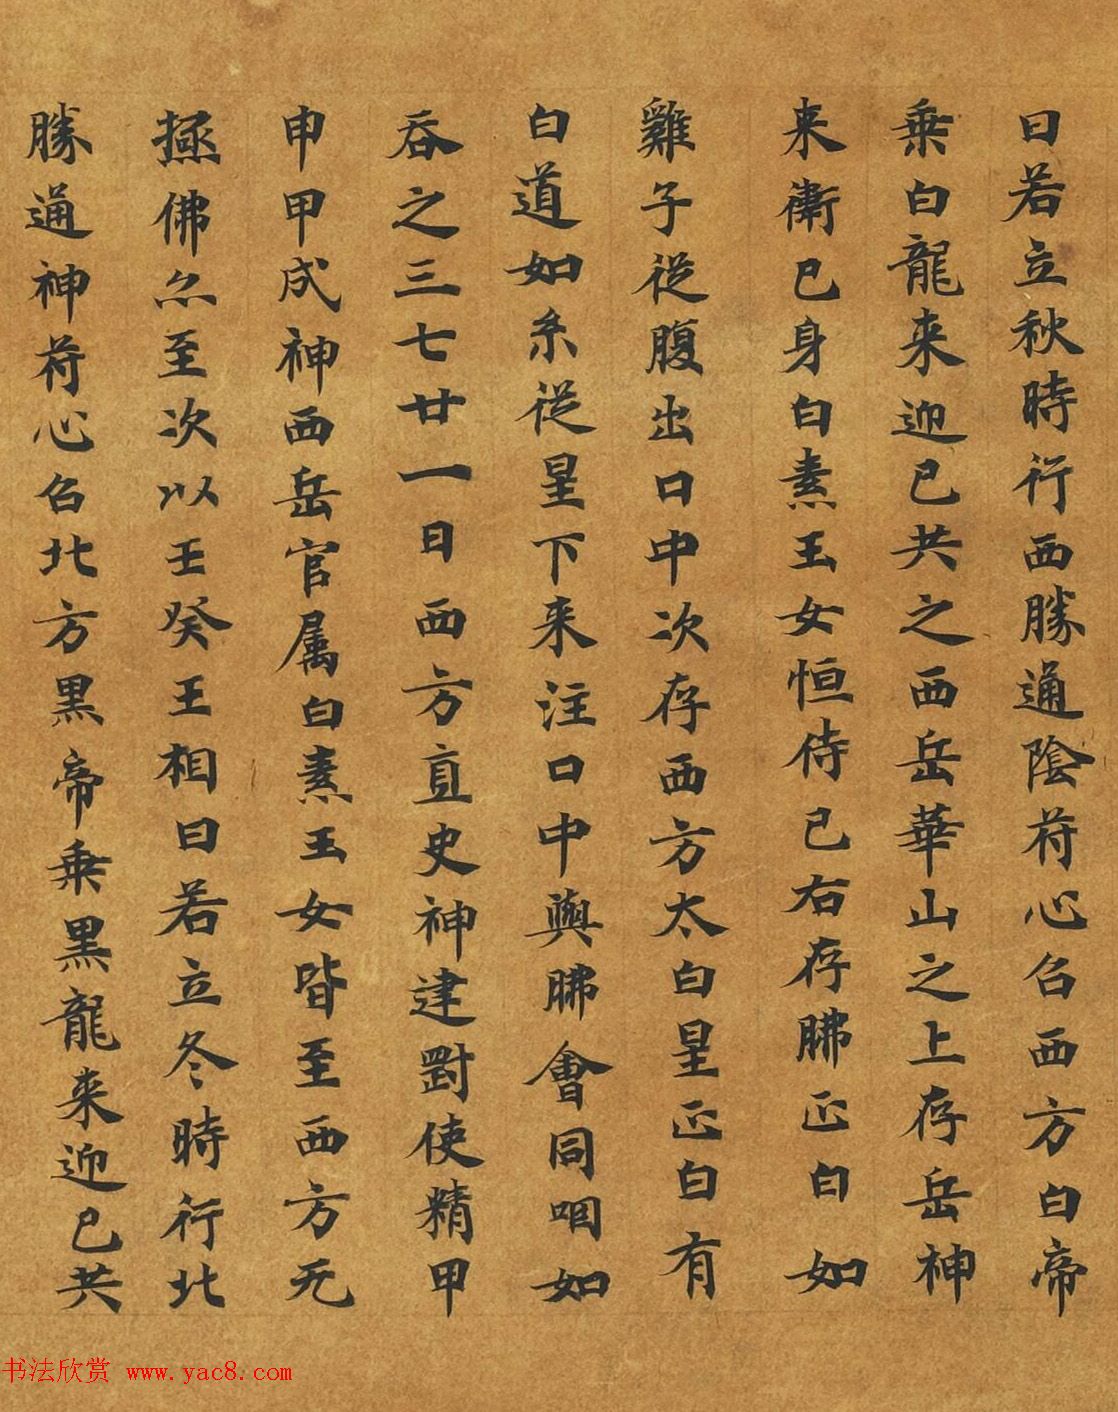 日若立秋時行西勝通陰苻心召西方白帝
乗白龍来迎己共之西岳華山之上存岳神
来衛己身白素玉女恒侍己右存胇正白如
雞子従腹出口中次存西方太白星正白有
白道如系従星下来注口中與胇會同咽如
吞之三七廿一日西方直史神建對使精甲
申甲成神西岳官属白素玉女皆至西方无
拯佛亦至次以壬癸王相日若立冬時行北
勝通神苻心召北方黒帝乗黒龍来迎己共
书法欣赏 www.yac8.com